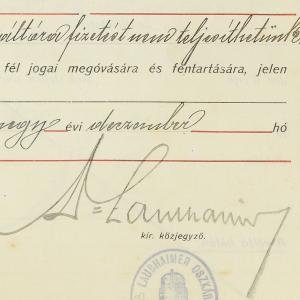 váltóra fizetést nem teljesíthetünk
fél jogai megóvására és fentartására, jelen
negy évi deczember hó
Dr Laubhaimer
kir. közjegyző.
LAUBHAIMER OSZKÁR